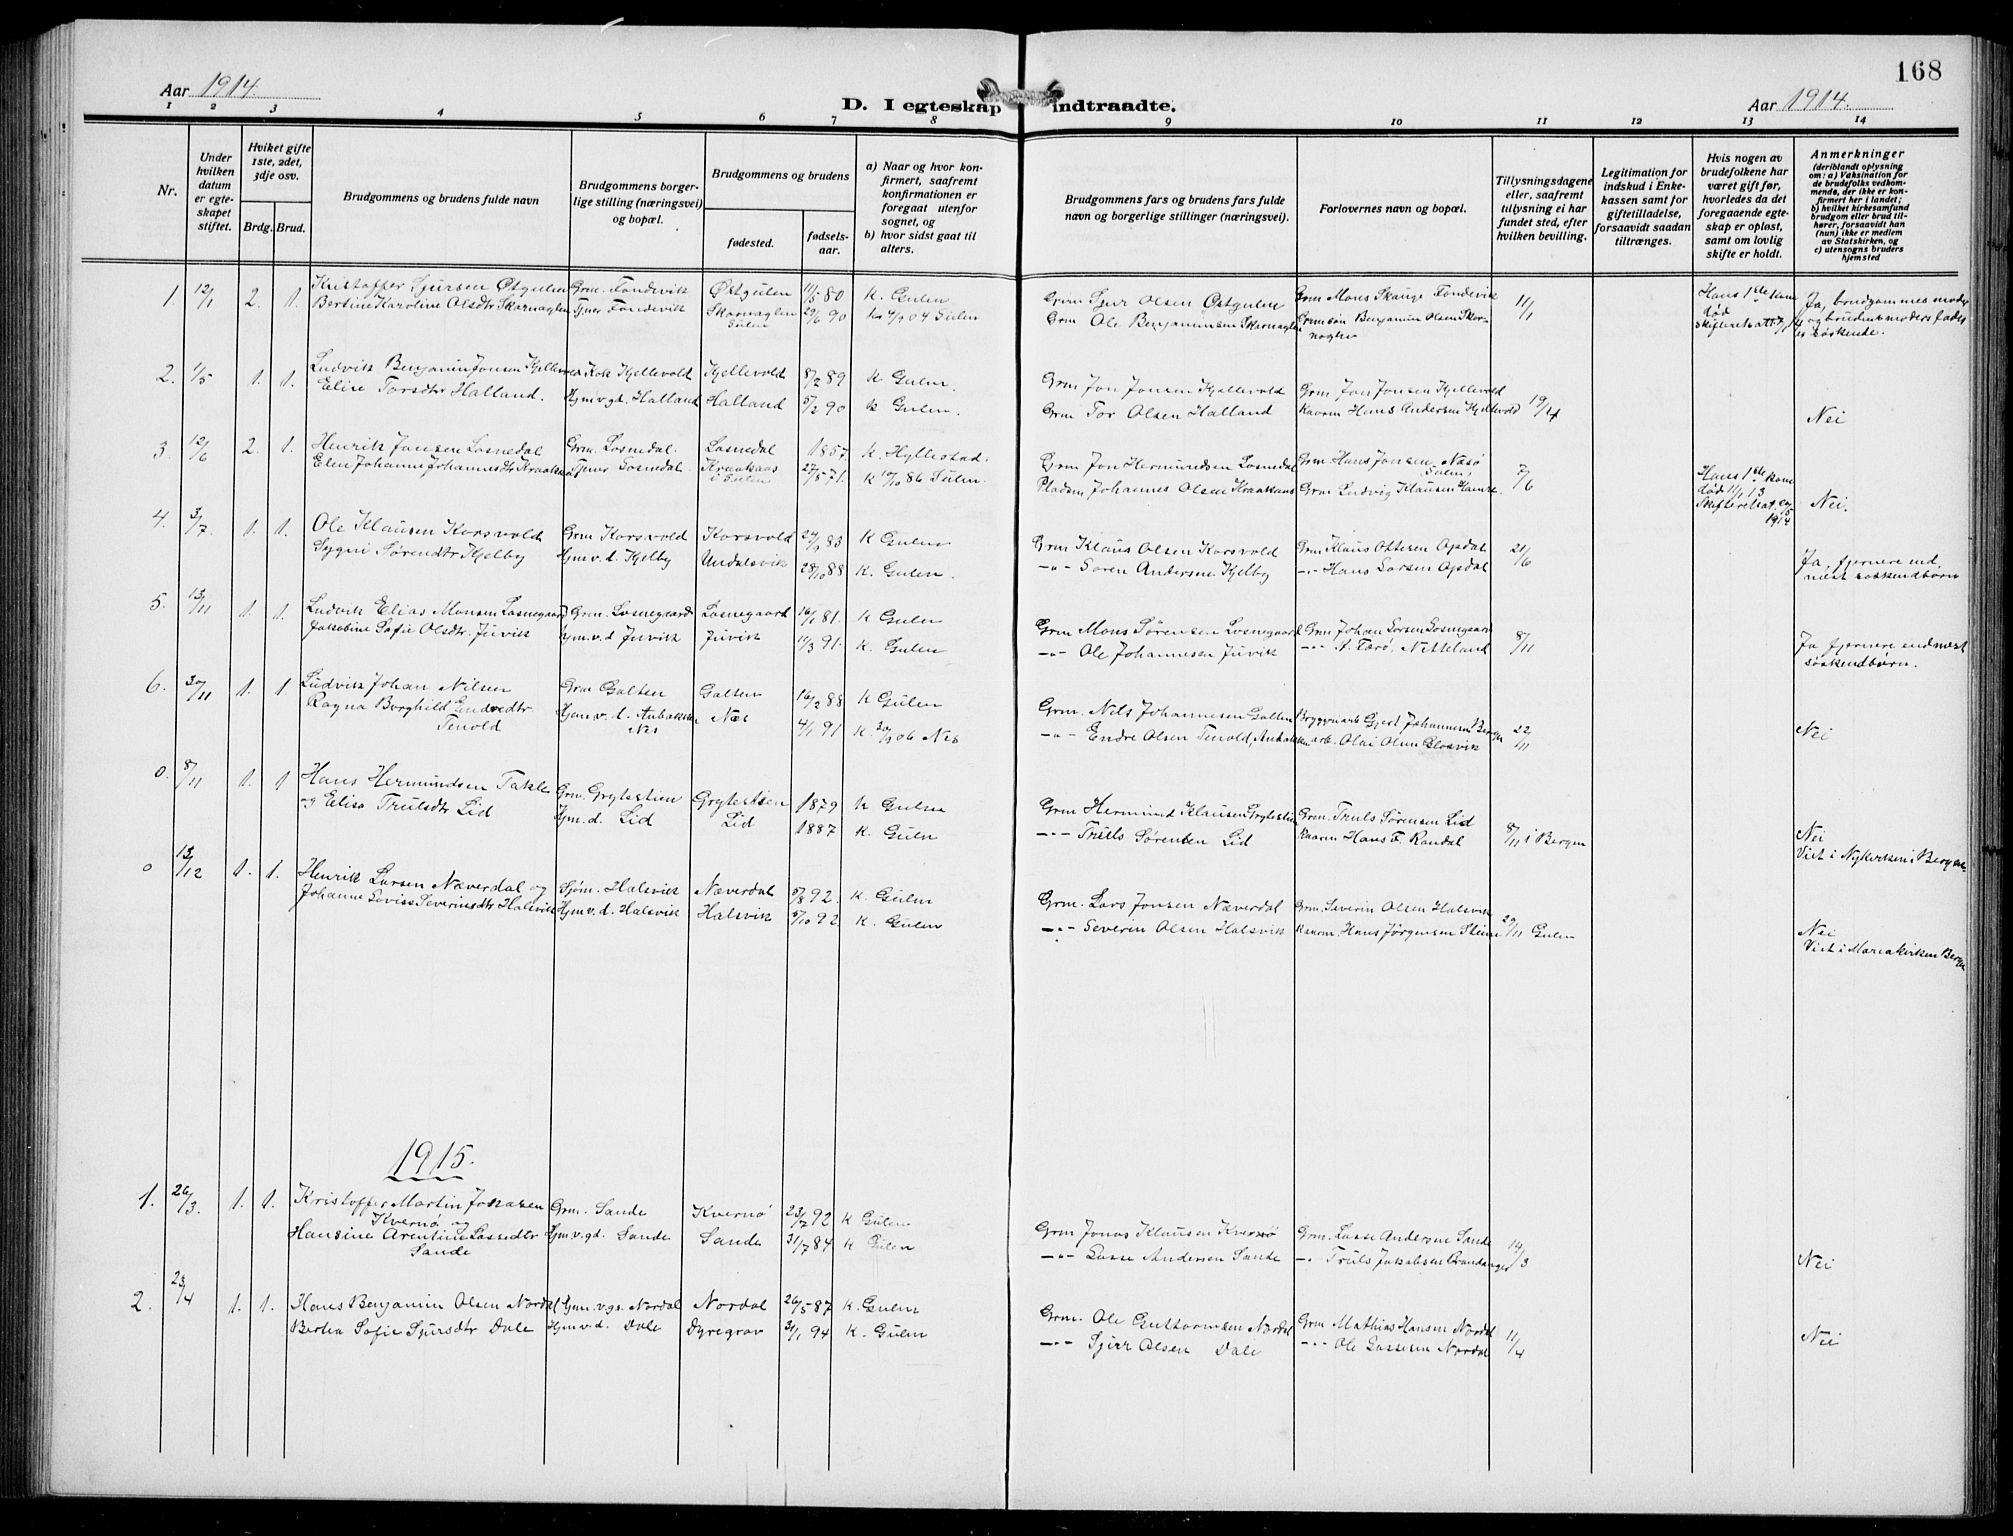 168
Aar 1914.
D. I egteskap indtraadte.
Aar 1914.
1 2 3 4 5 6 7 8 9 10 11 12 13 14
Nr.
Under hvilken datum er egteskapet stiftet.
Hviket gifte 1ste, 2det, 3dje osv.
Brdg. Brud.
Brudgommens og brudens fulde navn
Brudgommens borgerlige stilling (næringsvei) og bopæl.
Brudgommens og brudens
fødested.
fødselsaar.
a) Naar og hvor konfirmert, saafremt konfirmationen er foregaat utenfor sognet, og
b) hvor sidst gaat til alters.
Brudgommens fars og brudens fars fulde navn og borgerlige stillinger (næringsvei).
Forlovernes navn og bopæl.
Tillysningsdagene eller, saafremt tillysning ei har fundet sted, efter hvilken bevilling.
Legitimation for indskud i Enkekassen samt for giftetilladelse, forsaavidt saadan tiltrænges.
Hvis nogen av brudefolkene har været gift før, hvorledes da det foregaaende egteskap er opløst, samt om lovlig skifte er holdt.
Anmerkninger
(deriblandt oplysning om: a) Vaksination for de brudefolks vedkommende, der ikke er konfirmert her i landet; b) hvilket kirkesamfund brudgom eller brud tilhører, forsaavidt han (hun) ikke er medlem av Statskirken, og c) utensogns bruders hjemsted
1. 12/1 2. 1. Kristoffer Sjursen Østgulen Grm. Fondevik Østgulen 11/5 80 K. Gulen Grm Sjur Olsen Østgulen Grm Mons Skauge Fondevik 11/1 Hans 1ste kone død Ja, brudgommes moder
Bertine Karoline Olsdtr Skarnaglen Tjener Fondevik Skarnaglen Sulen 29/6 90 K. 4/9 04 Sulen Grm Ole Benjaminsen Skarnaglen Grmsøn Benjamin Olsen Skarnaglen og brudens moders fader er søskende.
2. 1/5 1. 1. Ludvik Benjamin Jonsen Kjellevold Kok Kjellevold Kjellevold 8/2 89 K Gulen. Grm Jon Jonsen Kjellevold Grm Jon Jonsen Kjellevold 19/4
Elise Torsdtr Halland. Hjm v. gd. Halland Halland 5/2 90 K Gulen. Grm Tor Olsen Halland Kaarm Hans Andersen Kjellevold Nei
3. 12/6 2. 1. Henrik Jonsen Losnedal Grm. Losnedal. Losnedal 1857. K. Hyllestad. Grm Jon Hermundsen Losnedal Grm Hans Jonsen Nesø Sulen 7/6 Hans 1ste kone død
Elen Johanne Johannesdtr Kraakaas Tjener Losnedal Kraakaas i Sulen 27/5 71. K 10/10 86 Sulen. Pladsm Johannes Olsen Kraakaas Grm Ludvig Klausen Hamre. 1914 Nei.
4. 3/7. 1. 1. Ole Klausen Korsvold Grm Korsvold Korsvold 24/9 83 K Gulen Grm Klaus Olsen Korsvold Grm Klaus Ottesen Opdal 21/6
Sygni Sørendtr Kjelby Hjm v. d. Kjelby Undalsvik 28/10 88 K. Gulen. -"- Søren Andersen Kjelby -"- Hans Larsen Opdal Ja, fjernere end næst søskendbørn
5. 13/11 1. 1. Ludvik Elias Monsen Losnegaard Grm. Losnegaard Losnegaard 16/1 81. K Gulen Grm Mons Sørensen Losnegaard Grm Johan Larsen Losnegaard 8/11
Jakobine Sofie Olsdtr. Juvik Hjm. v. d Juvik Juvik 11/3 91. K. Gulen -"- Ole Johannesen Juvik -"- A. Færø, Netteland Ja fjernere end næst søskendbørn.
6. 30/11 1. 1 Ludvik Johan Nilsen Grm Galten Galten 16/2 88 K Gulen Grm. Nels Johannesen Galten Bryggearb Gjert Johannesen Bergen 22/11
Ragna Borghild Endredtr. Tenold Hjm. v. d. Nes Næs 4/1 91 K. 30/9 06 Nes -"- Endre Olsen Tenold, Olai Olsen Glosvik Nei
0. 8/11 1. 1 Hans Hermundsen Takle Grm. Grytestien Grytestøen 1879 K Gulen Grm Hermund Klausen Grytestien Grm. Truls Sørensen Lid 8/11 i Bergen
og Elisa Trulsdtr Lid Hjm. d. Lid Lid 1887 K. Gulen -"- Truls Sørensen Lid Kaarm Hans F. Randal Nei
Viet i Nykirken i Bergen.
0 13/12 1. 1. Henrik Larsen Næverdal og Sjøm. Halsvik Næverdal 5/8 92. K. Gulen Grm. Lars Jonsen Næverdal Grm. Severin Olsen Halsvik 29/11 Gulen
Johanne Lovise Severinsdtr Halsvik Hjm v. d. Halsvik Halsvik 5/10 92. K. Gulen -"- Severin Olsen Halsvik Kaarm. Hans Jørgensen Steine Nei
Viet i Mariakirken Bergen
1915.
1. 26/3. 1. 1. Kristoffer Martin Jonasen Kvernø og Grm. Sande Kvernø 23/7 92 K Gulen Grm Jonas Klausen Kvernø Grm. Lasse Andersen Sande 14/3
Hansine Arentine Lassedtr Sande Hjm v. gd. Sande Sande 31/7 84 K Gulen -"- Lasse Andersen Sande -"- Truls Jakobsen Brandanger Nei
2. 23/4 1. 1. Hans Benjamin Olsen Nordal Hjm. v. gs. Nordal Nordal 26/5 87 K. Gulen Grm. Ole Guttormsen Nordal Grm Mathias Hansen Nordal 11/4
Berta Sofie Sjursdtr Dale Hjm v. d. Dale Dyregrov 31/1 94 K. Gulen -"- Sjur Olsen Dale -"- Ole Lassesen Nordal Nei